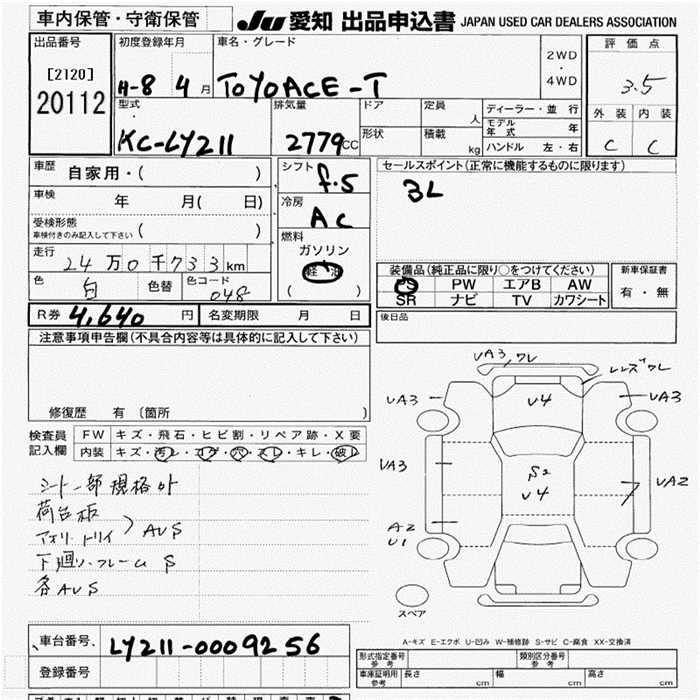 車内保管・守衛保管
JU 愛知 出品申込書 JAPAN USED CAR DEALERS ASSOCIATION
出品番号 初度登録年月 車名・グレード 2WD・4WD 評価点
[2120] H-8 4月 TOYOACE-T 3.5
20112
型式 排気量 ドア 定員 人 ディーラー・並行 外装 内装
KC-LY211 2779CC 形状 積載 kg モデル年式 年 C C
ハンドル 左・右
車歴 自家用・( ) シフト f.5 セールスポイント(正常に機能するものに限ります)
車検 年 月( 日) 冷房 AC 3L
受検形態 ( )
車検付きのみ記入して下さい
燃料
走行 24万0千733km ガソリン
軽油
色 白 色替 色コード 048 ( )
装備品(純正品に限り○をつけてください) 新車保証書
PS PW エアB AW 有・無
SR ナビ TV カワシート
R券 4,640円 名変期限 月 日 後日品
注意事項申告欄(不具合内容等は具体的に記入して下さい)
修復歴 有〔箇所 〕
検査員記入欄
FW キズ・飛石・ヒビ割・リペア跡・X要
内装 キズ・汚レ・コゲ・穴・スレ・キレ・破レ
シート一部規格外
荷台板
アオリ・トリイ 〉AUS
下廻り・フレーム S
各AUS
UA3,ワレ
レンズワレ
UA3 U4 UA3
UA3 S2 U4 UA2
A2
U1
スペア
A-キズ E-エクボ U-凹み W-補修跡 S-サビ C-腐食 XX-交換済
車台番号 LY211-0009256
登録番号
形式指定番号 参考 類別区分番号 参考
車庫証明用 参考 長さ cm 幅 cm 高さ cm